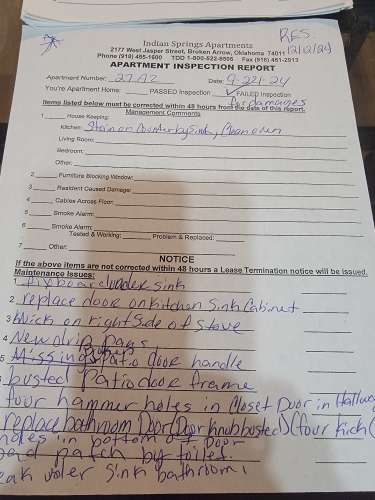 RES.
12/2/24
Indian Springs Apartments
2177 West Jasper Street, Broken Arrow, Oklahoma 74011
Phone (918) 455-1600 TDD 1-800-522-8506 Fax (918) 451-2913
APARTMENT INSPECTION REPORT
Apartment Number: 27A2 Date: 9-221-24
You're Apartment Home: PASSED Inspection ✓ FAILED Inspection
for damages
Items listed below must be corrected within 48 hours from the date of this report.
Management Comments
1 House Keeping:
Kitchen: Stain on counter by sink, clean oven
Living Room:
Bedroom:
Other:
2 Furniture Blocking Window:
3 Resident Caused Damage:
4 Cables Across Floor:
5 Smoke Alarm:
6 Smoke Alarm:
Tested & Working: Problem & Replaced:
7 Other:
NOTICE
If the above items are not corrected within 48 hours a Lease Termination notice will be issued.
Maintenance Issues:
1 Fix board under sink
2 replace door on kitchen sink Cabinet
3 on right side of stove
4 New drip pans
5 Missing patio door handle
busted Patio door frame
four hammer holes in Closet Door in Hallway
replace bathroom Door (Door knob busted) (four kick
holes in bottom of Door
patch by toilet.
eak under sink bathroom